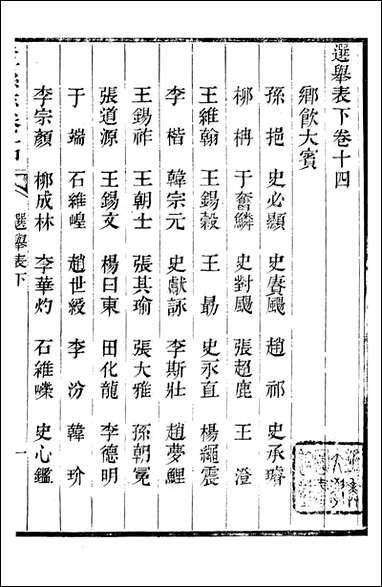 選舉表下卷十四
鄉飲大賓
孫挹 史必顯 史賡颺 趙祁 史承璿
柳枏 于奮鱗 史對颺 張超鹿 王澄
王維翰 王錫穀 王勗 史永直 楊繩震
李楷 韓宗元 史獻詠 李斯壯 趙夢鯉
王錫祚 王朝士 張其瑜 張大雅 孫朝冕
張道源 王錫文 楊曰東 田化龍 李德明
于瑞 石維崲 趙世綬 李汾 韓玠
李宗顏 柳成林 李華灼 石維嶫 史心鑑
選舉表下
一